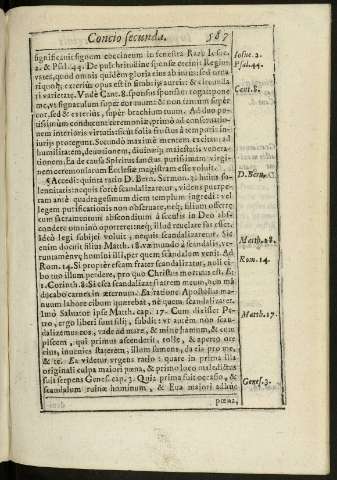 Concio secunda. 587
significauit signum coccineum in fenestra Raab Iosue
2. & Psal. 44. De pulchritudine sponsæ cecinit Regius
vates, quod omnis quidem gloria eius ab intus: sed
riquoq; exteriùs opus est in fimbrijs aureis: & circunda
ri varietate. Vnde Cant. 8. sponsus sponsam rogat: pone
me, vt signaculum super cor tuum: & non tantùm super
cor, sed & exteriùs, super brachium tuum. Ad duo po-
tissimùm conducunt ceremoniæ, primò ad conseruatio-
nem interioris virtutis: sicut folia fructus à temporis in-
iurijs protegunt. Secundò maximè mentem excitant: ad
humilitatem, deuotionem, diuinæq; maiestatis venera-
tionem. Ea de causa Spiritus sanctus purissimam virgi-
nem ceremoniarum Ecclesiæ magistram esse voluit.
¶ Accedit quinta ratio D. Bern. Sermon. 3. huius so-
lennitatis: nequis fortè scandalizaretur, videns puerpe-
ram ante quadragesimum diem templum ingredi: vel
legem purificationis non obseruare, neq; filium offerre;
cum sacramentum absconditum à seculis in Deo abs-
condere omninò oporteret: neq; illud reuelare fas esset.
Ideò legi subijci voluit, nequis scandalizaretur. Sic
enim docuit filius Matth. 18. væ mundo à scandalis, ve-
runtamen væ homini illi, per quem scandalum venit. Ad
Rom. 14. Si propter escam frater scandalizatur, noli ci-
bo tuo illum perdere, pro quo Christus mortuus est. Et
1. Corinth. 8. Si esca scandalizat fratrem meum, non mã
ducabo carnes in æternum. Ea ratione Apostolus ma-
nuum labore cibum quærebat, nè quem scandalizaret.
Imò Saluator ipse Matth. cap. 17. Cum dixisset Pe-
tro, ergo liberi sunt filij, subdit: vt autem non scan-
dalizemus eos, vade ad mare, & mitte hamum, & eum
piscem, qui primus ascenderit, tolle, & aperto ore
eius, inuenies staterem, illum sumens, da eis pro me,
& te. Ex videtur vrgens ratio: quare in prima illa
originali culpa maiori pœna, & primo loco maledictus
fuit serpens Genes. cap. 3. Quia prima fuit occasio, &
scandalum ruinæ hominum, & Eua maiori adhuc
pœna,
Iosue. 2.
Psal. 44.
Cant. 8.
D. Bern.
Matth. 18.
Rom. 14.
Matth. 17.
Genes. 3.